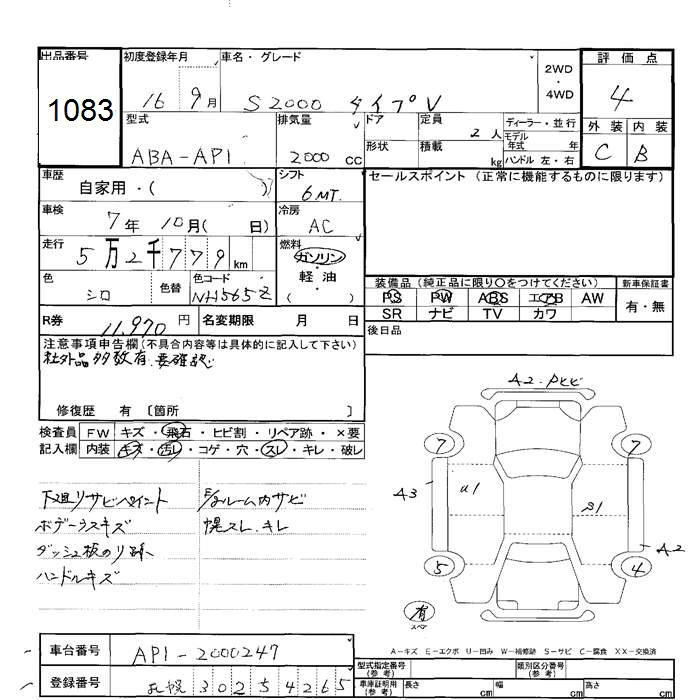 出品番号
1083
初度登録年月
16 9月
車名・グレード
S2000 タイプV
2WD
・
4WD
評価点
4
型式
ABA-AP1
排気量
2000 cc
ドア
形状
定員
2人
積載
kg
ディーラー・並行
モデル
年式 年
ハンドル 左・右
外装 内装
C B
車歴
自家用・( )
シフト
6MT
セールスポイント (正常に機能するものに限ります)
車検
7年 10月( 日)
冷房
AC
走行
5万2千779km
燃料
ガソリン
・
軽・油
( )
色
シロ
色替
色コード
NH565Z
装備品 (純正品に限り○をつけてください)
新車保証書
PS PW ABS エアB AW
有・無
SR ナビ TV カワ
R券
11,970 円
名変期限 月 日
後日品
注意事項申告欄(不具合内容等は具体的に記入して下さい)
社外品多数有、要確認
修復歴 有 〔箇所 〕
検査員
記入欄
FW キズ・飛石・ヒビ割・リペア跡・×要
内装 キズ・汚レ・コゲ・穴・スレ・キレ・破レ
下廻リサビペイント
ボデーラスキズ
ダッシュ板のり跡
ハンドルキズ
E/gルーム内サビ
幌スレ.キレ
A2.Pヒビ
7 7
A3
U1
A2
5 4
有
スペア
A-キズ E-エクボ U-凹み W-補修跡 S-サビ C-腐食 XX-交換済
車台番号
AP1-2000247
登録番号
札幌 302 5 4265
型式指定番号
(参考)
類別区分番号
(参考)
車庫証明用
(参考)
長さ cm
幅 cm
高さ cm